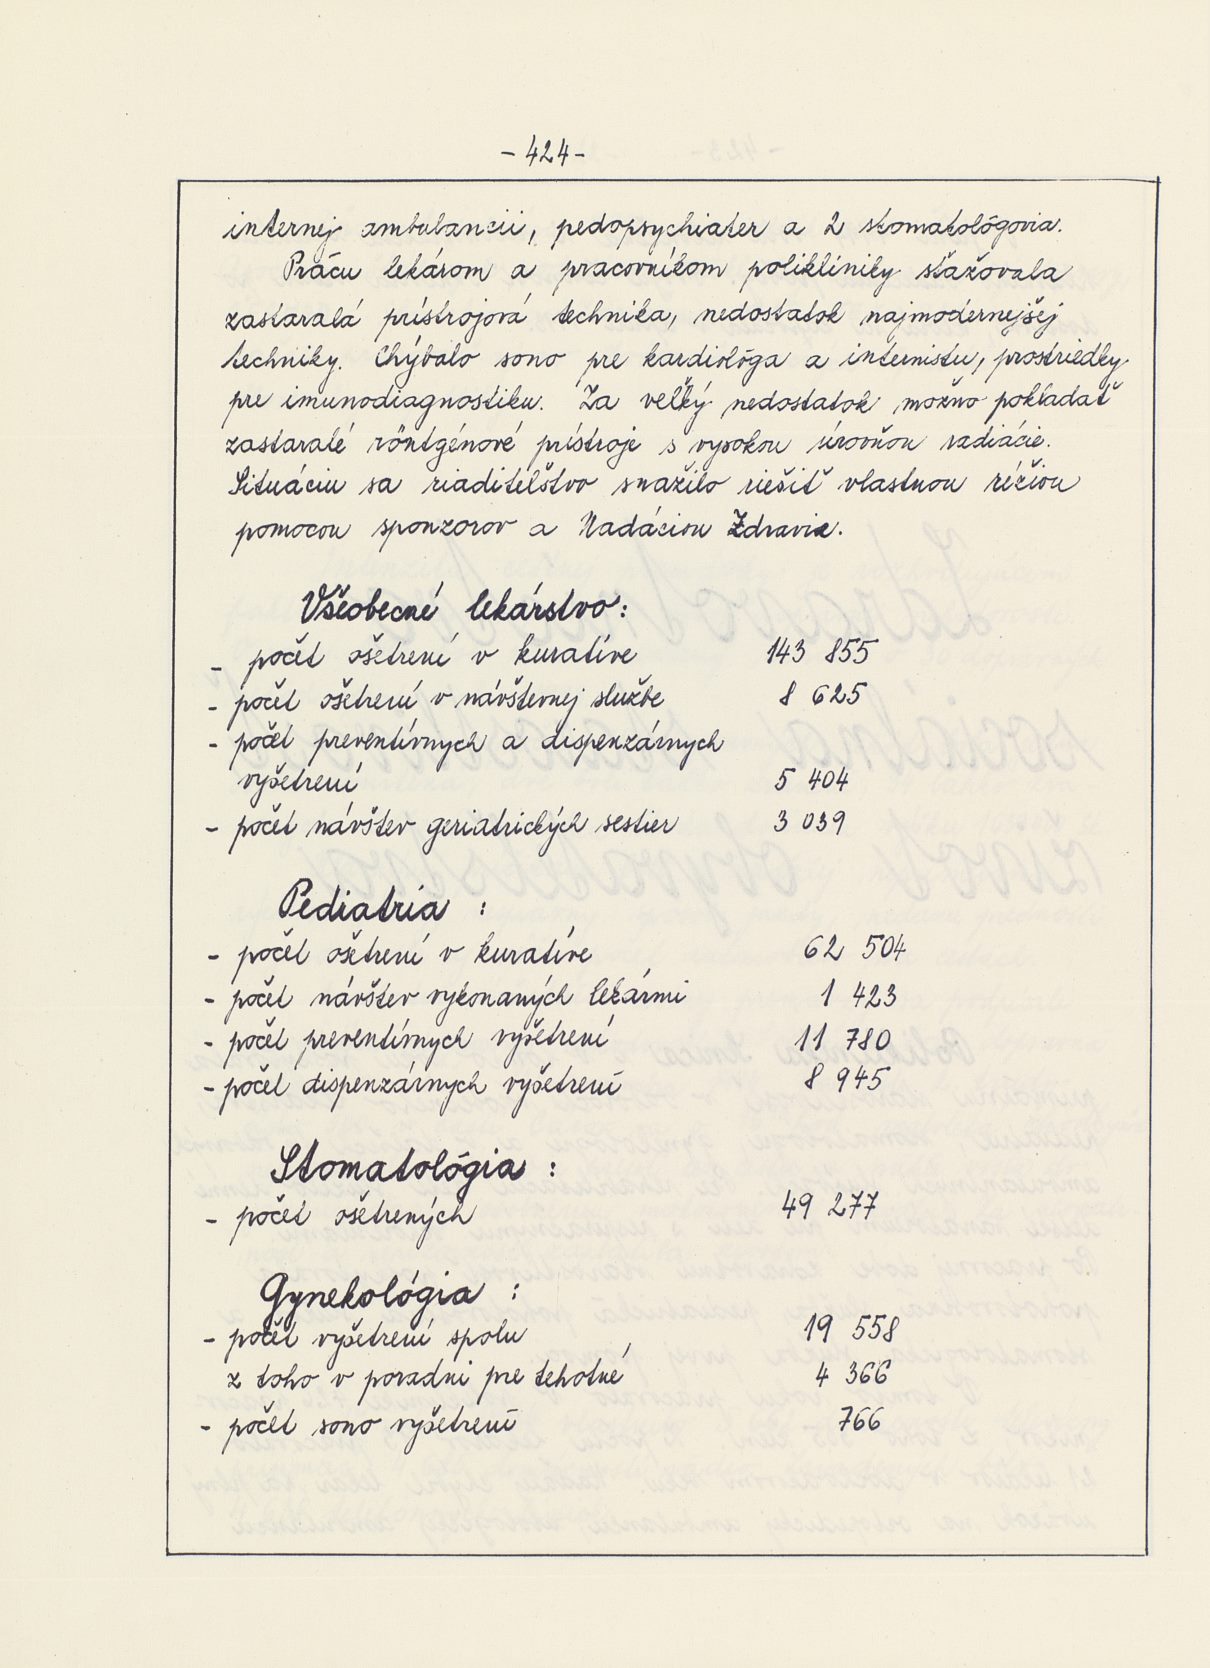 - 424 -
internej ambulancii, pedopsychiater a 2 stomatológovia.
Prácu lekárom a pracovníkom polikliniky sťažovala
zastaralá prístrojová technika, nedostatok najmodernejšej
techniky. Chýbalo sono pre kardiológa a internistu, prostriedky
pre imunodiagnostiku. Za veľký nedostatok možno pokladať
zastaralé röntgénové prístroje s vysokou úrovňou radiácie.
Situáciu sa riaditeľstvo snažilo riešiť vlastnou réžiou
pomocou sponzorov a Nadáciou Zdravie.
Všeobecné lekárstvo:
- počet ošetrení v kuratíve 143 855
- počet ošetrení v návštevnej službe 8 625
- počet preventívnych a dispenzárnych
vyšetrení 5 404
- počet návštev geriatrických sestier 3 039
Pediatria :
- počet ošetrení v kuratíve 62 504
- počet návštev vykonaných lekármi 1 423
- počet preventívnych vyšetrení 11 780
- počet dispenzárnych vyšetrení 8 945
Stomatológia :
- počet ošetrených 49 277
Gynekológia :
- počet vyšetrení spolu 19 558
z toho v poradni pre tehotné 4 366
- počet sono vyšetrení 766